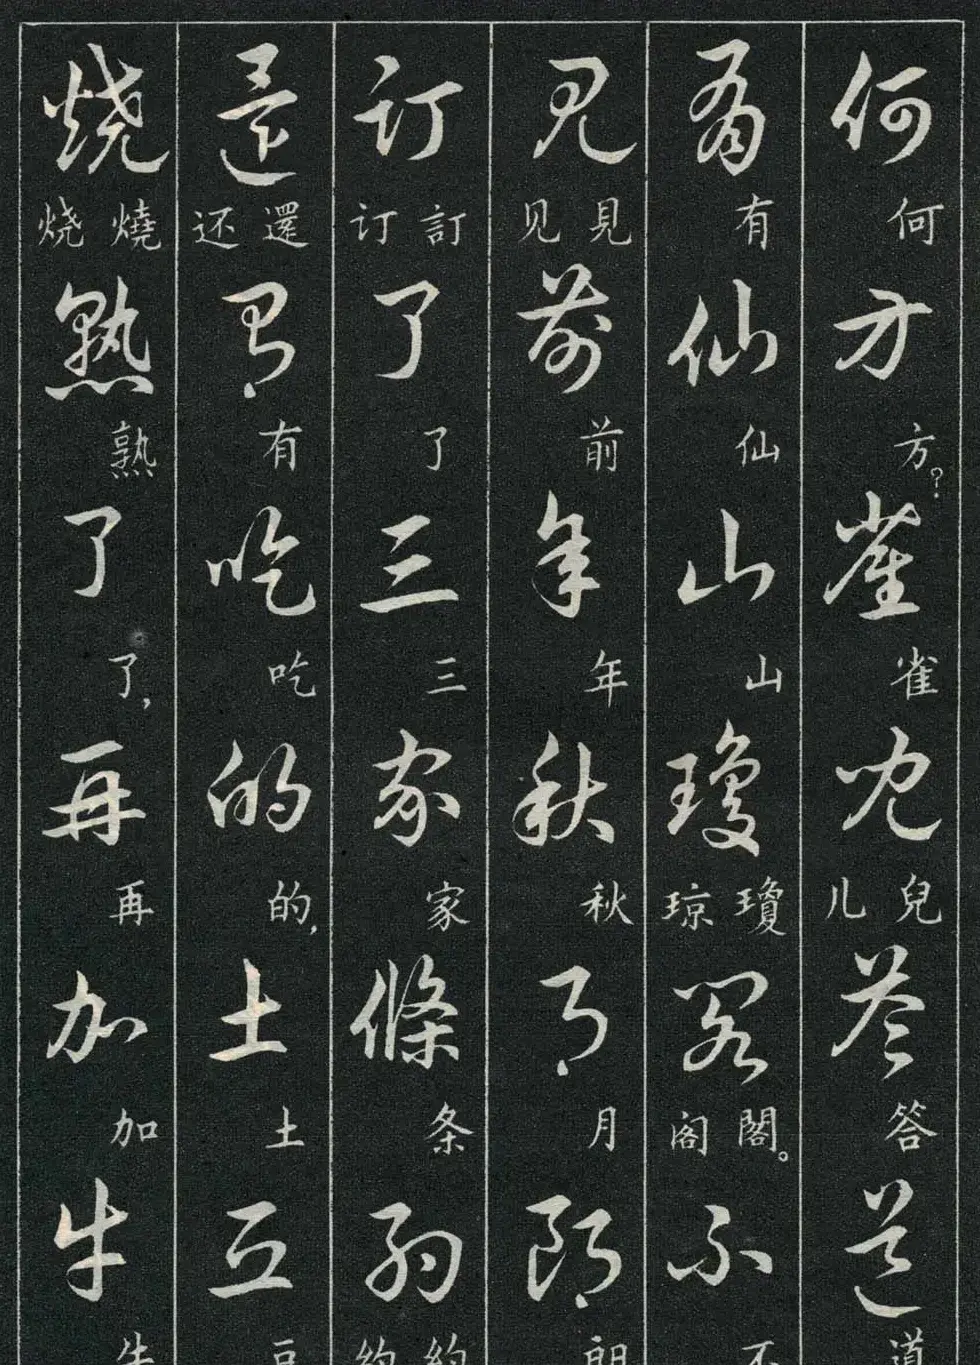 何 方 雀 兒 答 道
何 方？ 雀 儿 兒 答 道
有 仙 山 瓊 閣 不
有 仙 山 琼 瓊 阁 閣。 不
見 前 年 秋 月 朗
见 見 前 年 秋 月 朗
訂 了 三 家 條 約
订 訂 了 三 家 条 约 約
還 有 吃 的 土 豆
还 還 有 吃 的， 土 豆
燒 熟 了 再 加 牛
烧 燒 熟 了， 再 加 牛